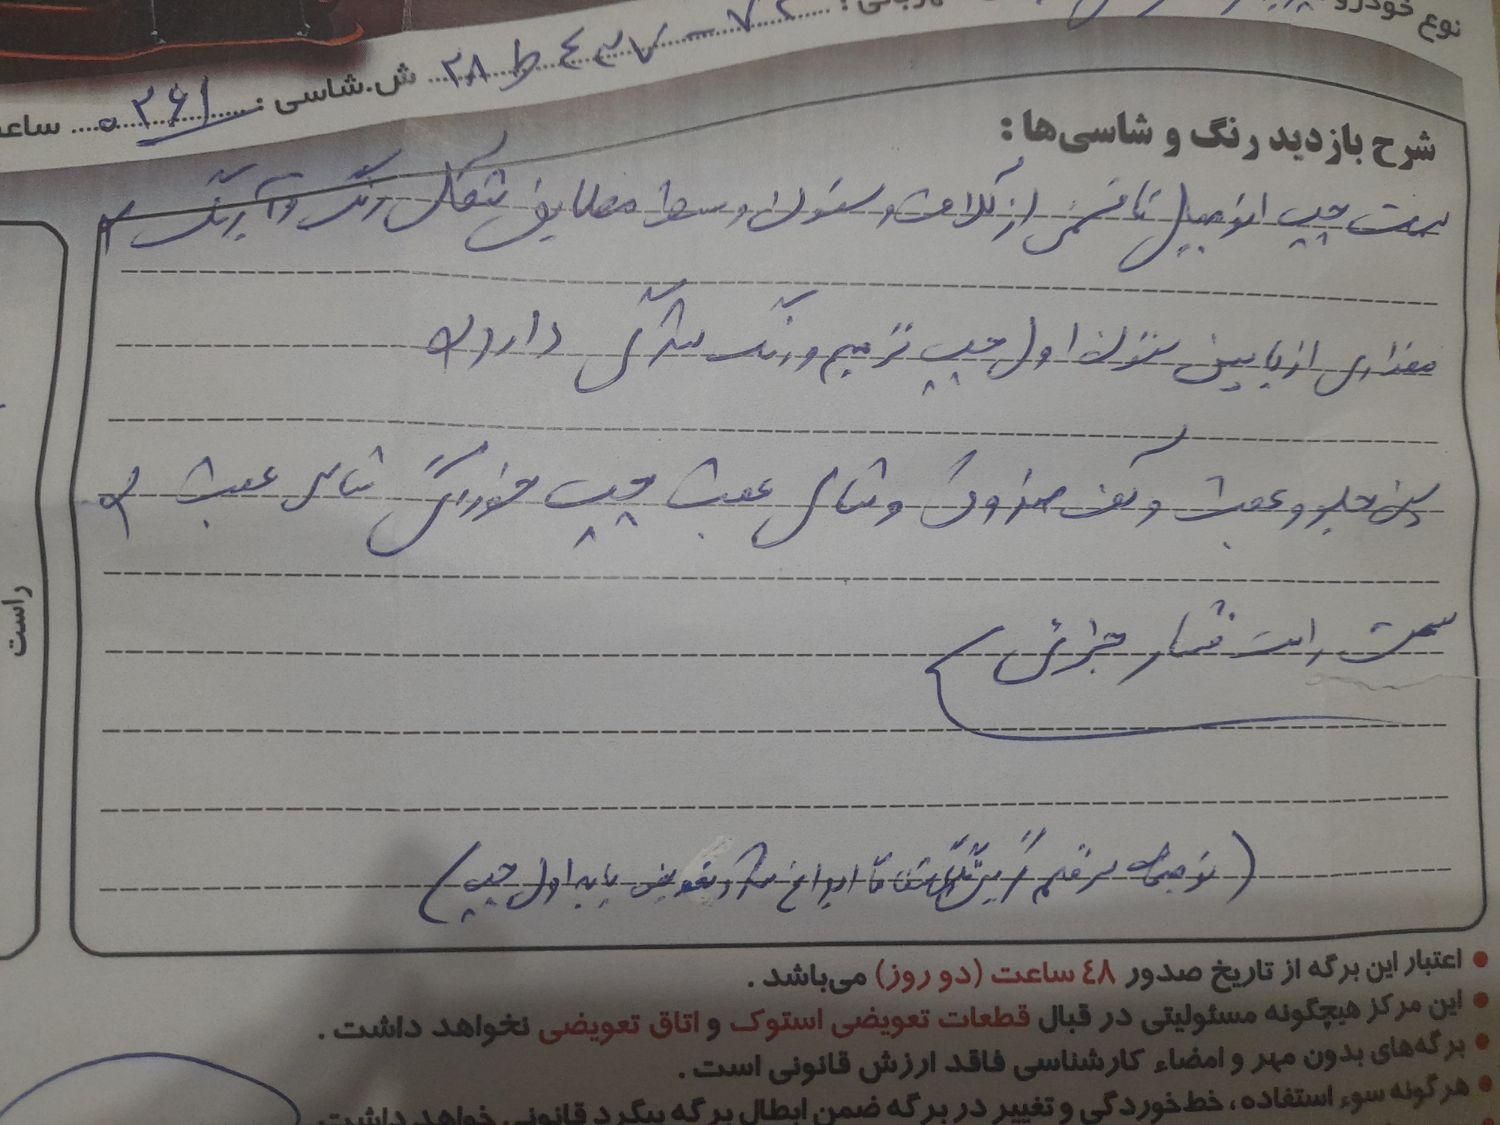 نوع خودرو
۷۲ – ۴۳۷ ط ۲۸ ش.شاسی : ۰۳۶۱ ساعت
شرح بازدید رنگ و شاسی‌ها :
سمت چپ اتومبیل تا قسمتی از گلافت و ستون وسط مطابق شکل رنگ و آبرنگ
مقداری از پایین ستون اول چپ ترمیم و رنگ شدگی دارد
سینی جلو و عقب و کف صندوق و شاسی عقب چپ خوردگی شاسی عقب
سمت راست فشار جزئی
( توضیحات شد و تعویض پایه اول چپ )
راست
• اعتبار این برگه از تاریخ صدور ٤٨ ساعت (دو روز) می‌باشد .
• این مرکز هیچگونه مسئولیتی در قبال قطعات تعویضی استوک و اتاق تعویضی نخواهد داشت .
• برگه‌های بدون مهر و امضاء کارشناسی فاقد ارزش قانونی است .
• هرگونه سوء استفاده، خط‌خوردگی و تغییر در برگه ضمن ابطال برگه پیگرد قانونی خواهد داشت.